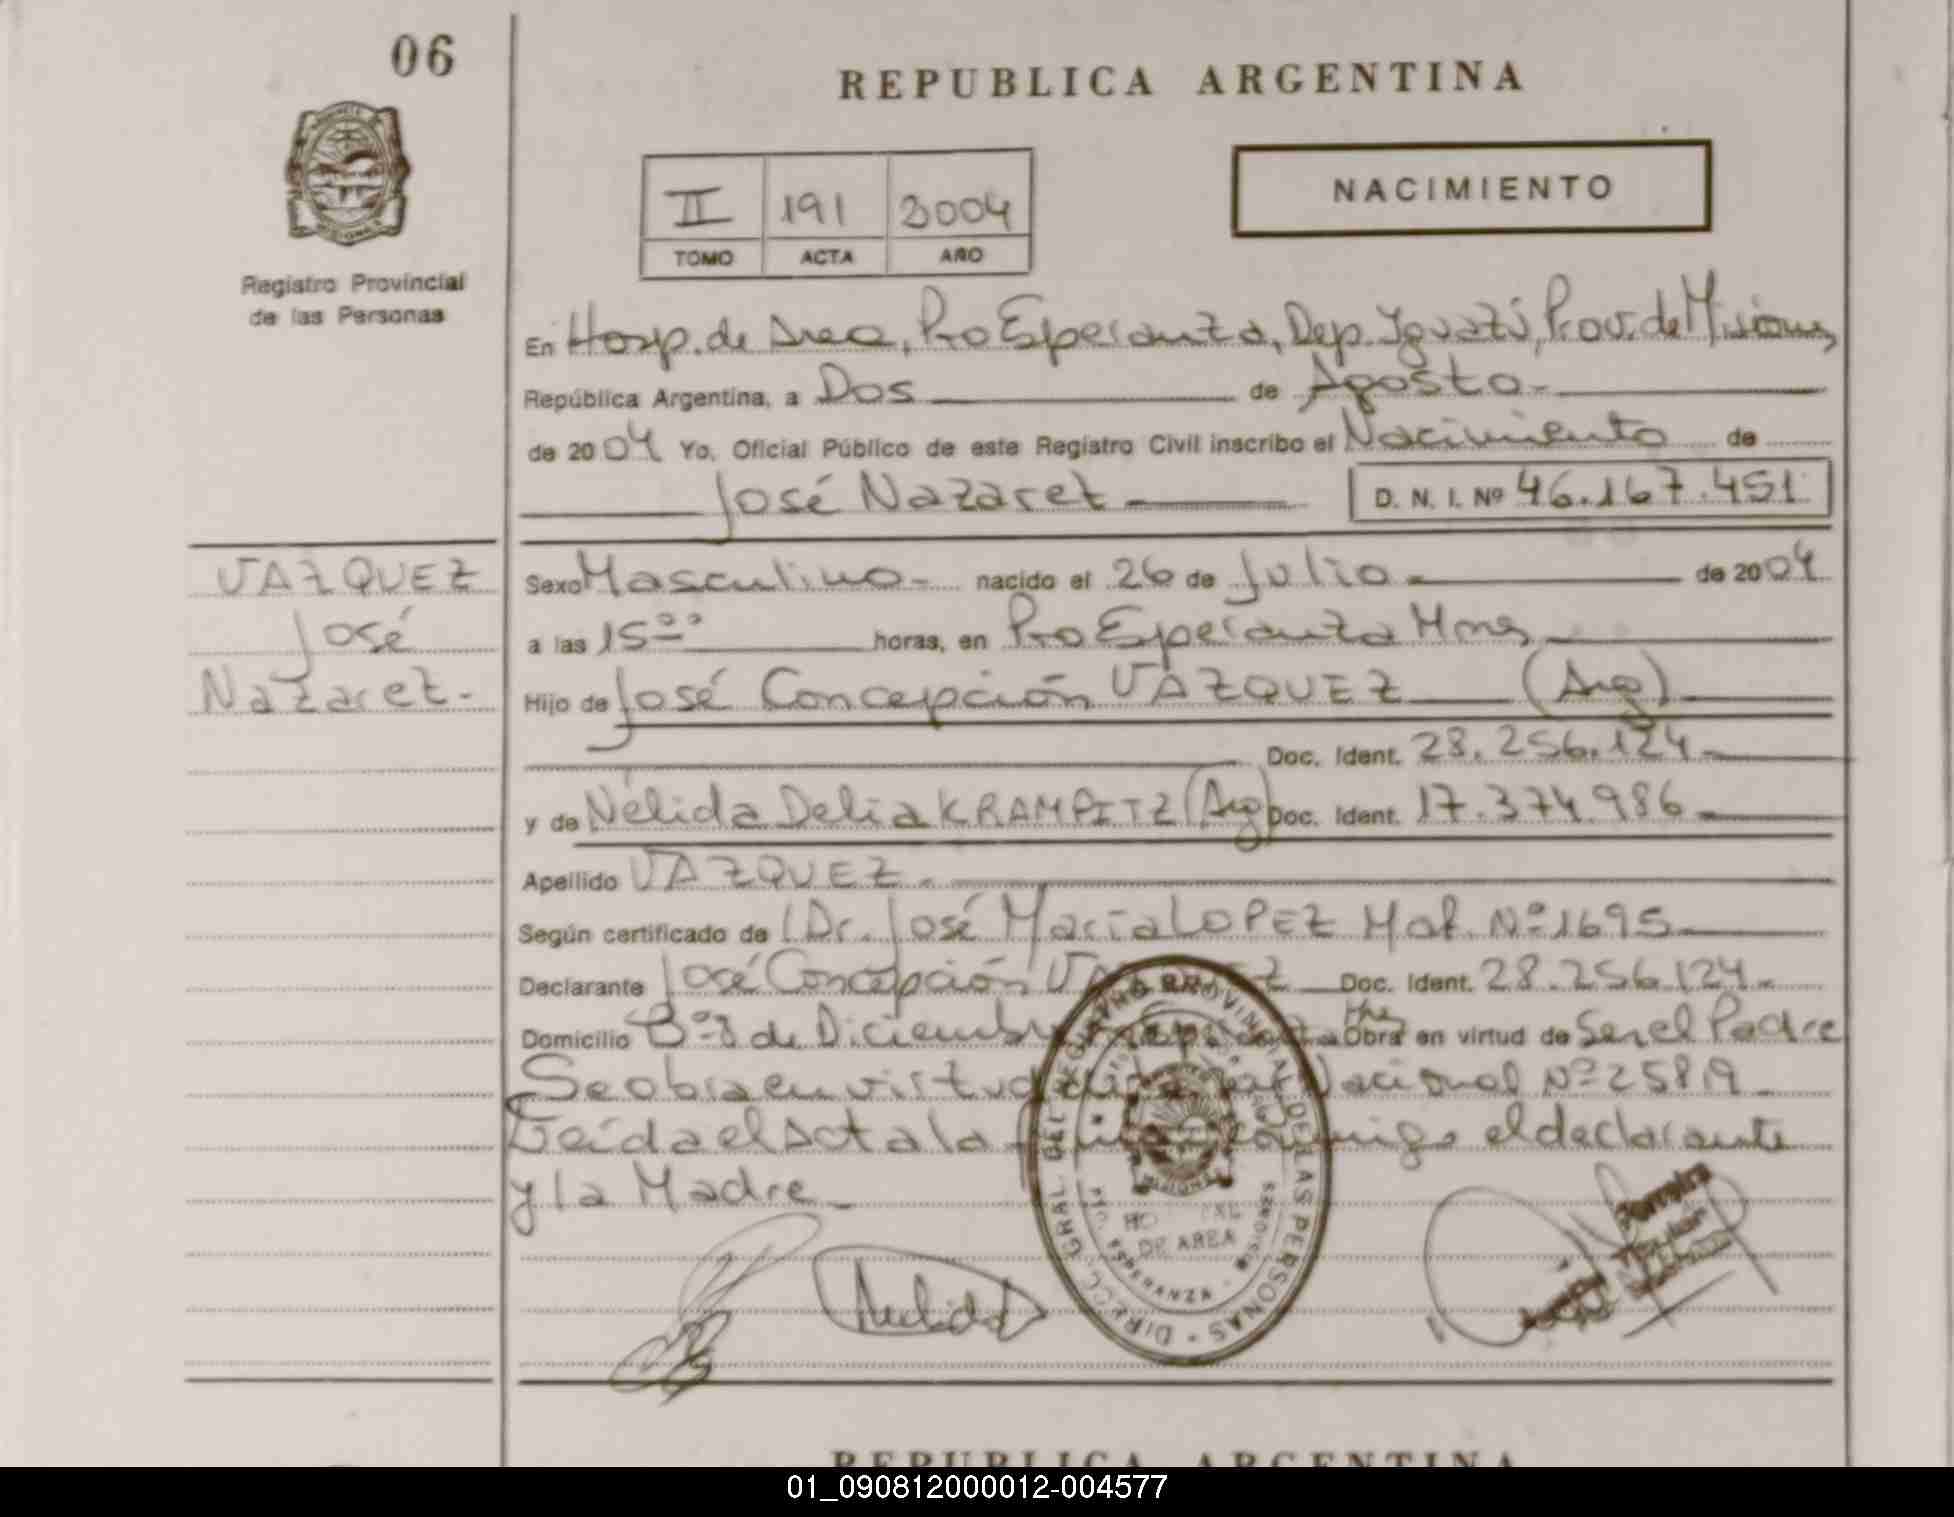 06
REPUBLICA ARGENTINA
NACIMIENTO
II 191 2004
TOMO ACTA AÑO
Registro Provincial
de las Personas
En Hosp. de Area, Pto Esperanza, Dep. Iguazú, Prov. de Misiones
República Argentina, a Dos de Agosto.-
de 2004 Yo, Oficial Público de este Registro Civil inscribo el Nacimiento de
José Nazaret D. N. I. Nº 46.167.451
VAZQUEZ
José
Nazaret.-
Sexo Masculino.- nacido el 26 de Julio.- de 2004
a las 15°° horas, en Pto Esperanza Mnes
Hijo de José Concepción VAZQUEZ (Arg)
Doc. Ident. 28.256.124.-
y de Nélida Delia KRAMPITZ (Arg) Doc. Ident. 17.374.986
Apellido VAZQUEZ.-
Según certificado de Dr. José María LOPEZ Mat. Nº 1695
Declarante José Concepción Doc. Ident. 28.256.124.-
Domicilio Bº 8 de Diciembre Mnes Obra en virtud de Ser el Padre
Se obra en virtud Nacional Nº 25819
Leída el Acta la conmigo el declarante
y la Madre.-
DIRECC. GRAL. DEL REGISTRO PROVINCIAL DE LAS PERSONAS
MISIONES
HOSPITAL
DE AREA
Nelida
Titular
REPUBLICA ARGENTINA
01_090812000012-004577